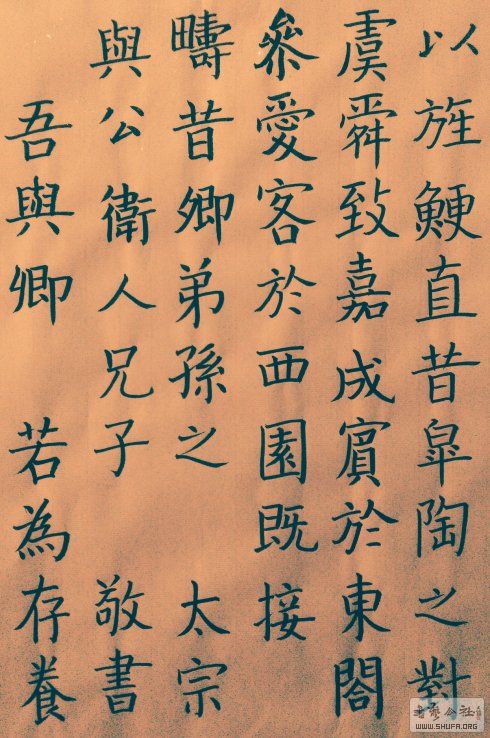 以旌鯁直昔皐陶之對
虞舜致嘉成賓於東閤
叅愛客於西園既接
疇昔卿弟孫之 太宗
與公衛人兄子 敬書
吾與卿 若為存養
WWW.SHUFA.ORG